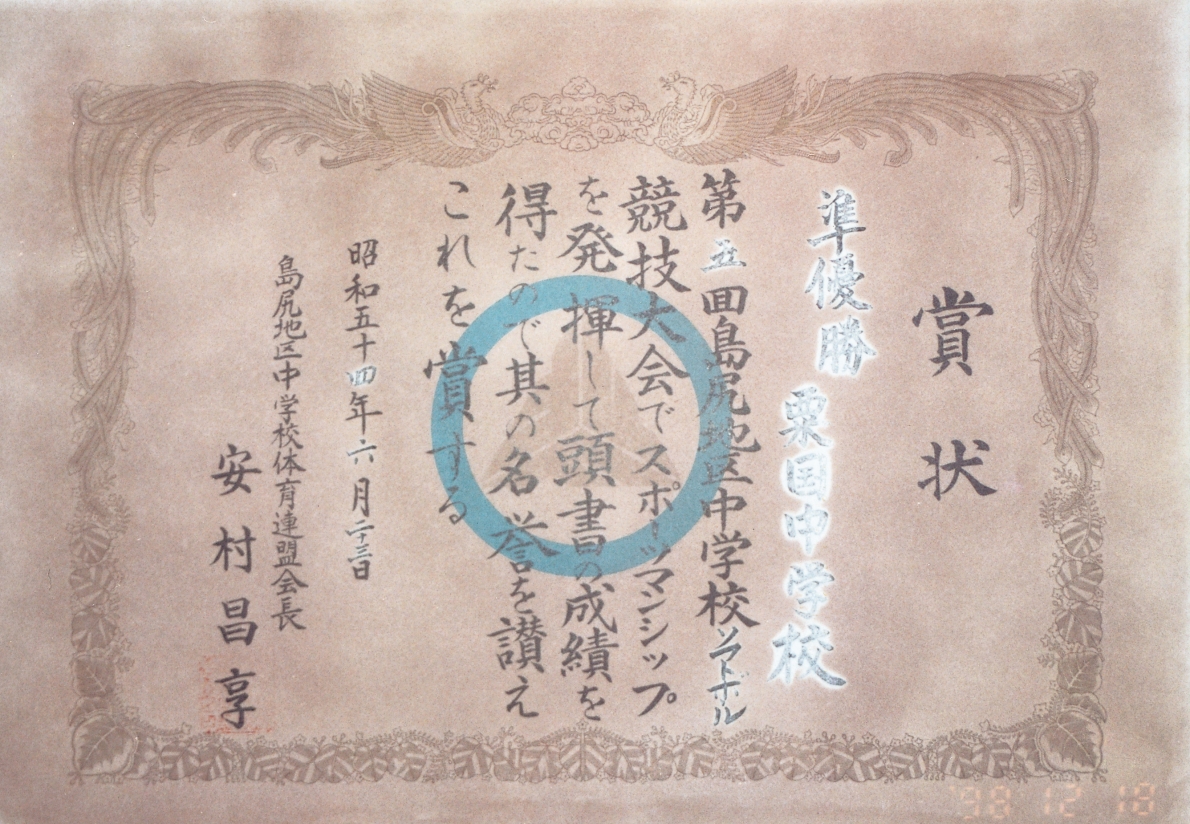 賞状
準優勝 粟国中学校
第五回島尻地区中学校ソフトボール
競技大会でスポーツマンシップ
を発揮して頭書の成績を
得たので其の名誉を讃え
これを賞する
昭和五十四年六月二十三日
島尻地区中学校体育連盟会長
安村昌享
'98 12 18